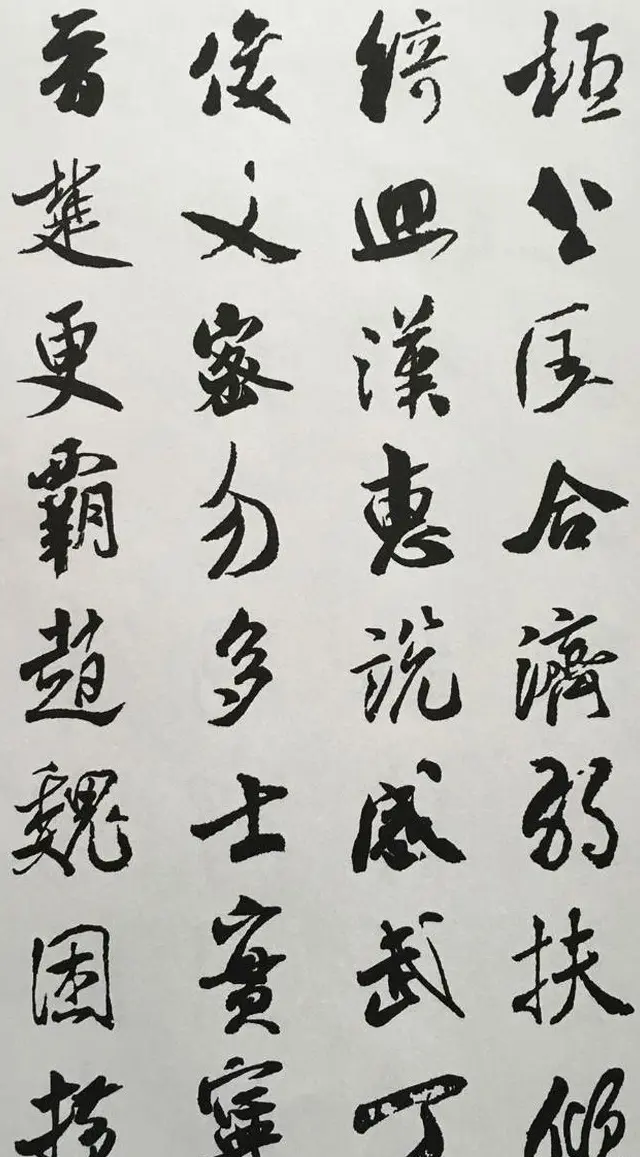 桓公匡合濟弱扶傾
綺迴漢惠說感武丁
俊乂密勿多士寔寧
晉楚更霸趙魏困橫